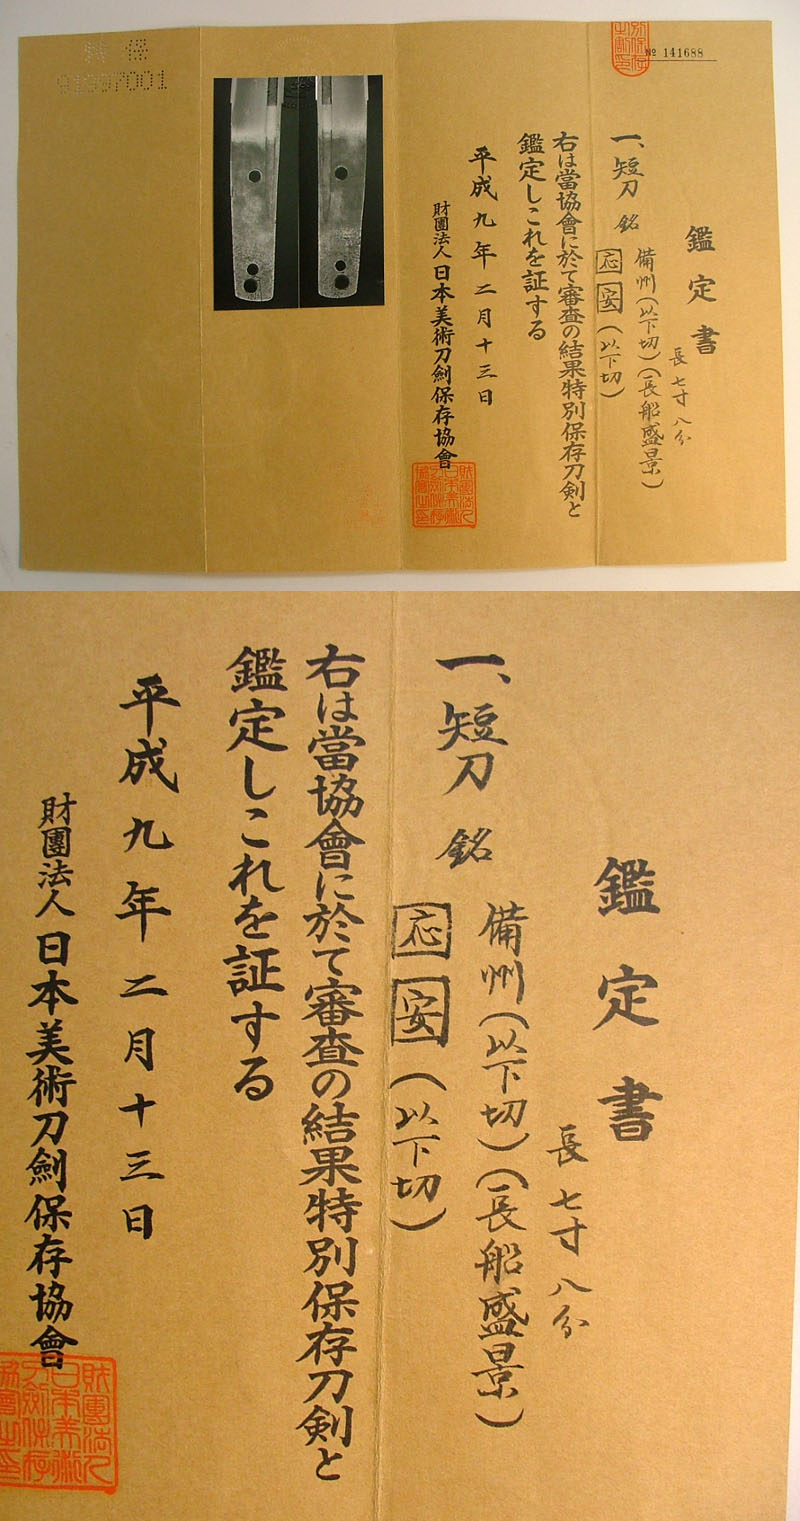 No 141688
鑑定書
長七寸八分
一、短刀 銘 備州(以下切)(長船盛景)
応安(以下切)
右は當協會に於て審査の結果特別保存刀剣と
鑑定しこれを証する
平成九年二月十三日
財團法人日本美術刀劍保存協會
鑑定書
長七寸八分
一、短刀 銘 備州(以下切)(長船盛景)
応安(以下切)
右は當協會に於て審査の結果特別保存刀剣と
鑑定しこれを証する
平成九年二月十三日
財團法人日本美術刀劍保存協會